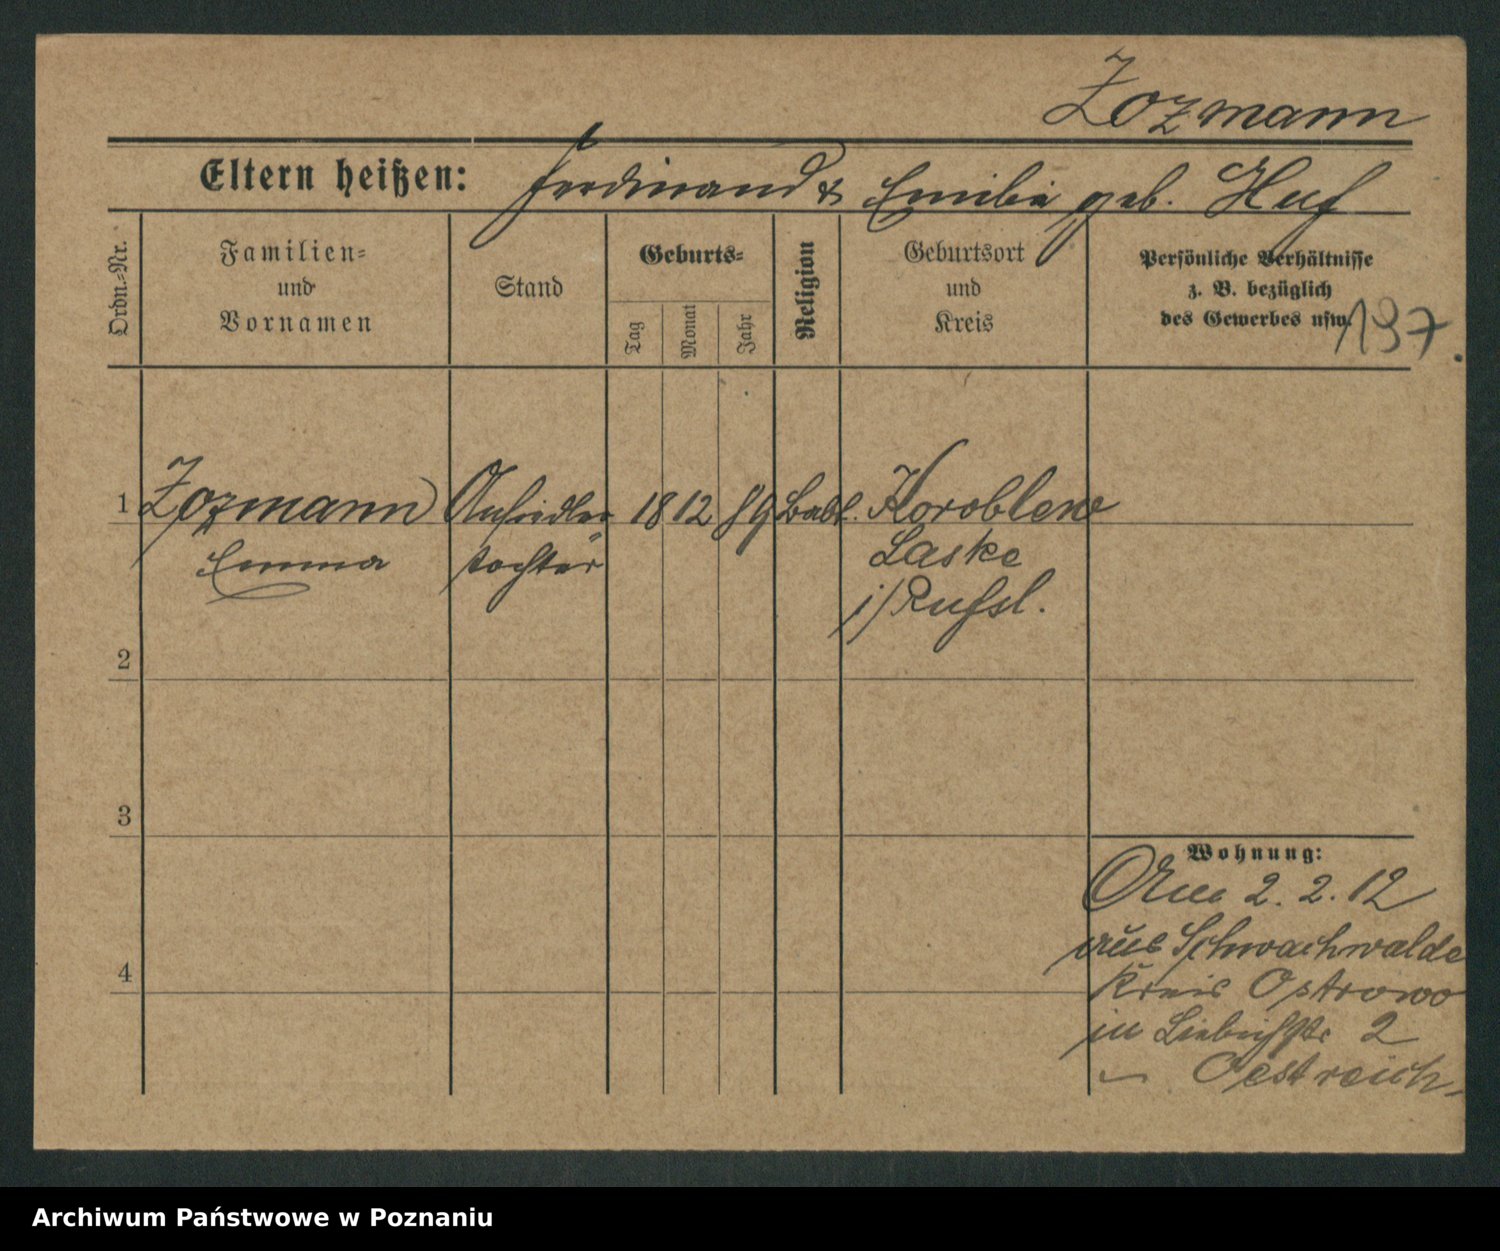 Zozmann
Eltern heißen: Ferdinand & Emilie geb. Huf
Ordn.-Nr.
Familien-
und
Vornamen
Stand
Geburts-
Tag
Monat
Jahr
Religion
Geburtsort
und
Kreis
Persönliche Verhältnisse
z. B. bezüglich
des Gewerbes usw.
197.
1 Zozmann Ansiedler 18 12 89 Babt. Koroblew
Emma tochter Laske
i/Russl.
2
3
4
Wohnung:
Am 2. 2. 12
aus Schwachwalde
Kreis Ostrowo
in 2
Oestreich
Archiwum Państwowe w Poznaniu